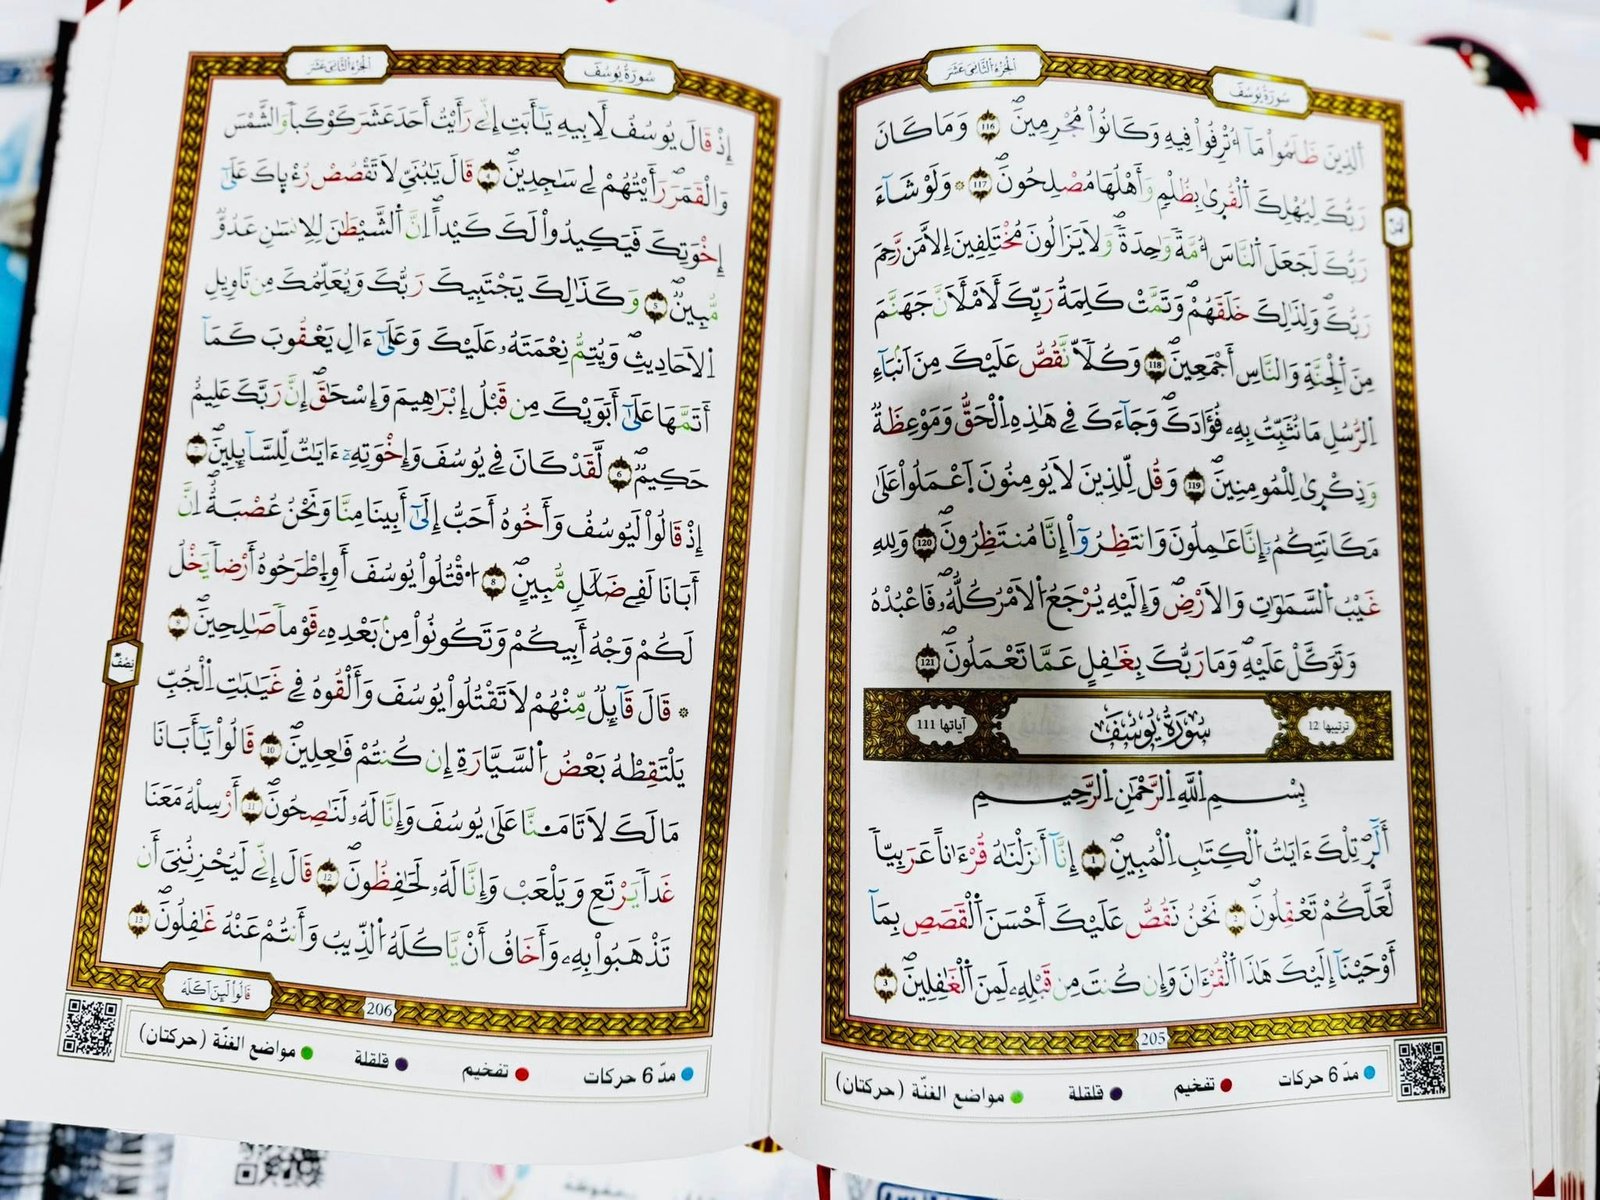 الجزء الثاني عشر
سورة يوسف
اَ۬لذِينَ ظَلَمُواْ مَآ أُتْرِفُواْ فِيهِ وَكَانُواْ مُجْرِمِينَۖ 116 وَمَا كَانَ
رَبُّكَ لِيُهْلِكَ اَ۬لْقُر۪ىٰ بِظُلْمٖ وَأَهْلُهَا مُصْلِحُونَۖ 117 ۞ وَلَوْ شَآءَ
رَبُّكَ لَجَعَلَ اَ۬لنَّاسَ أُمَّةٗ وَٰحِدَةٗۖ وَلَا يَزَالُونَ مُخْتَلِفِينَ إِلَّا مَن رَّحِمَ
رَبُّكَۖ وَلِذَٰلِكَ خَلَقَهُمْۖ وَتَمَّتْ كَلِمَةُ رَبِّكَ لَأَمْلَأَنَّ جَهَنَّمَ
مِنَ اَ۬لْجِنَّةِ وَالنَّاسِ أَجْمَعِينَۖ 118 وَكُلّاٗ نَّقُصُّ عَلَيْكَ مِنَ اَنۢبَآءِ
اِ۬لرُّسُلِ مَا نُثَبِّتُ بِهِۦ فُؤَادَكَۖ وَجَآءَكَ فِے هَٰذِهِ اِ۬لْحَقُّ وَمَوْعِظَةٞ
وَذِكْر۪ىٰ لِلْمُومِنِينَۖ 119 وَقُل لِّلذِينَ لَا يُومِنُونَ اَ۪عْمَلُواْ عَلَىٰ
مَكَانَتِكُمُۥٓ إِنَّا عَٰمِلُونَ وَانتَظِرُوٓاْ إِنَّا مُنتَظِرُونَۖ 120 وَلِلهِ
غَيْبُ اُ۬لسَّمَٰوَٰتِ وَالَارْضِۖ وَإِلَيْهِ يُرْجَعُ اُ۬لَامْرُ كُلُّهُۥۖ فَاعْبُدْهُ
وَتَوَكَّلْ عَلَيْهِۖ وَمَا رَبُّكَ بِغَٰفِلٍ عَمَّا تَعْمَلُونَۖ 121
ترتيبها 12 سُورَةُ يُوسُفَ آياتها 111
بِسْمِ اِ۬للَّهِ اِ۬لرَّحْمَٰنِ اِ۬لرَّحِيمِ
أَلَٓر۪ۖ تِلْكَ ءَايَٰتُ اُ۬لْكِتَٰبِ اِ۬لْمُبِينِۖ 1 إِنَّآ أَنزَلْنَٰهُ قُرْءَٰناً عَرَبِيّاٗ
لَّعَلَّكُمْ تَعْقِلُونَۖ 2 نَحْنُ نَقُصُّ عَلَيْكَ أَحْسَنَ اَ۬لْقَصَصِ بِمَآ
أَوْحَيْنَآ إِلَيْكَ هَٰذَا اَ۬لْقُرْءَانَ وَإِن كُنتَ مِن قَبْلِهِۦ لَمِنَ اَ۬لْغَٰفِلِينَۖ 3
ثمن
205
مدّ 6 حركات تفخيم قلقلة مواضع الغنّة (حركتان)
سورة يوسف
الجزء الثاني عشر
إِذْ قَالَ يُوسُفُ لِأَبِيهِ يَٰٓأَبَتِ إِنِّے رَأَيْتُ أَحَدَ عَشَرَ كَوْكَباٗ وَالشَّمْسَ
وَالْقَمَرَ رَأَيْتُهُمْ لِے سَٰجِدِينَۖ 4 قَالَ يَٰبُنَيِّ لَا تَقْصُصْ رُءْي۪اكَ عَلَىٰٓ
إِخْوَتِكَ فَيَكِيدُواْ لَكَ كَيْداًۖ اِنَّ اَ۬لشَّيْطَٰنَ لِلِانسَٰنِ عَدُوّٞ
مُّبِينٞۖ 5 وَكَذَٰلِكَ يَجْتَبِيكَ رَبُّكَ وَيُعَلِّمُكَ مِن تَاوِيلِ
اِ۬لَاحَادِيثِۖ وَيُتِمُّ نِعْمَتَهُۥ عَلَيْكَ وَعَلَىٰٓ ءَالِ يَعْقُوبَ كَمَآ
أَتَمَّهَا عَلَىٰٓ أَبَوَيْكَ مِن قَبْلُ إِبْرَٰهِيمَ وَإِسْحَٰقَۖ إِنَّ رَبَّكَ عَلِيمٌ
حَكِيمٞۖ 6 لَّقَدْ كَانَ فِے يُوسُفَ وَإِخْوَتِهِۦٓ ءَايَٰتٞ لِّلسَّآئِلِينَۖ 7
إِذْ قَالُواْ لَيُوسُفُ وَأَخُوهُ أَحَبُّ إِلَىٰٓ أَبِينَا مِنَّا وَنَحْنُ عُصْبَةٌۖ اِنَّ
أَبَانَا لَفِے ضَلَٰلٖ مُّبِينٍۖ 8 اُ۟قْتُلُواْ يُوسُفَ أَوِ اِ۪طْرَحُوهُ أَرْضاٗ يَخْلُ
لَكُمْ وَجْهُ أَبِيكُمْ وَتَكُونُواْ مِنۢ بَعْدِهِۦ قَوْماٗ صَٰلِحِينَۖ 9
۞ قَالَ قَآئِلٞ مِّنْهُمْ لَا تَقْتُلُواْ يُوسُفَ وَأَلْقُوهُ فِے غَيَٰبَٰتِ اِ۬لْجُبِّ
يَلْتَقِطْهُ بَعْضُ اُ۬لسَّيَّارَةِ إِن كُنتُمْ فَٰعِلِينَۖ 10 قَالُواْ يَٰٓأَبَانَا
مَا لَكَ لَا تَامَ۬نَّا عَلَىٰ يُوسُفَ وَإِنَّا لَهُۥ لَنَٰصِحُونَۖ 11 أَرْسِلْهُ مَعَنَا
غَداٗ يَرْتَعِ وَيَلْعَبْ وَإِنَّا لَهُۥ لَحَٰفِظُونَۖ 12 قَالَ إِنِّے لَيُحْزِنُنِيَ أَن
تَذْهَبُواْ بِهِۦ وَأَخَافُ أَنْ يَّاكُلَهُ اُ۬لذِّيبُ وَأَنتُمْ عَنْهُ غَٰفِلُونَۖ 13
نصف
قَالُواْ لَئِنَ اَكَلَهُ
206
مدّ 6 حركات تفخيم قلقلة مواضع الغنّة (حركتان)